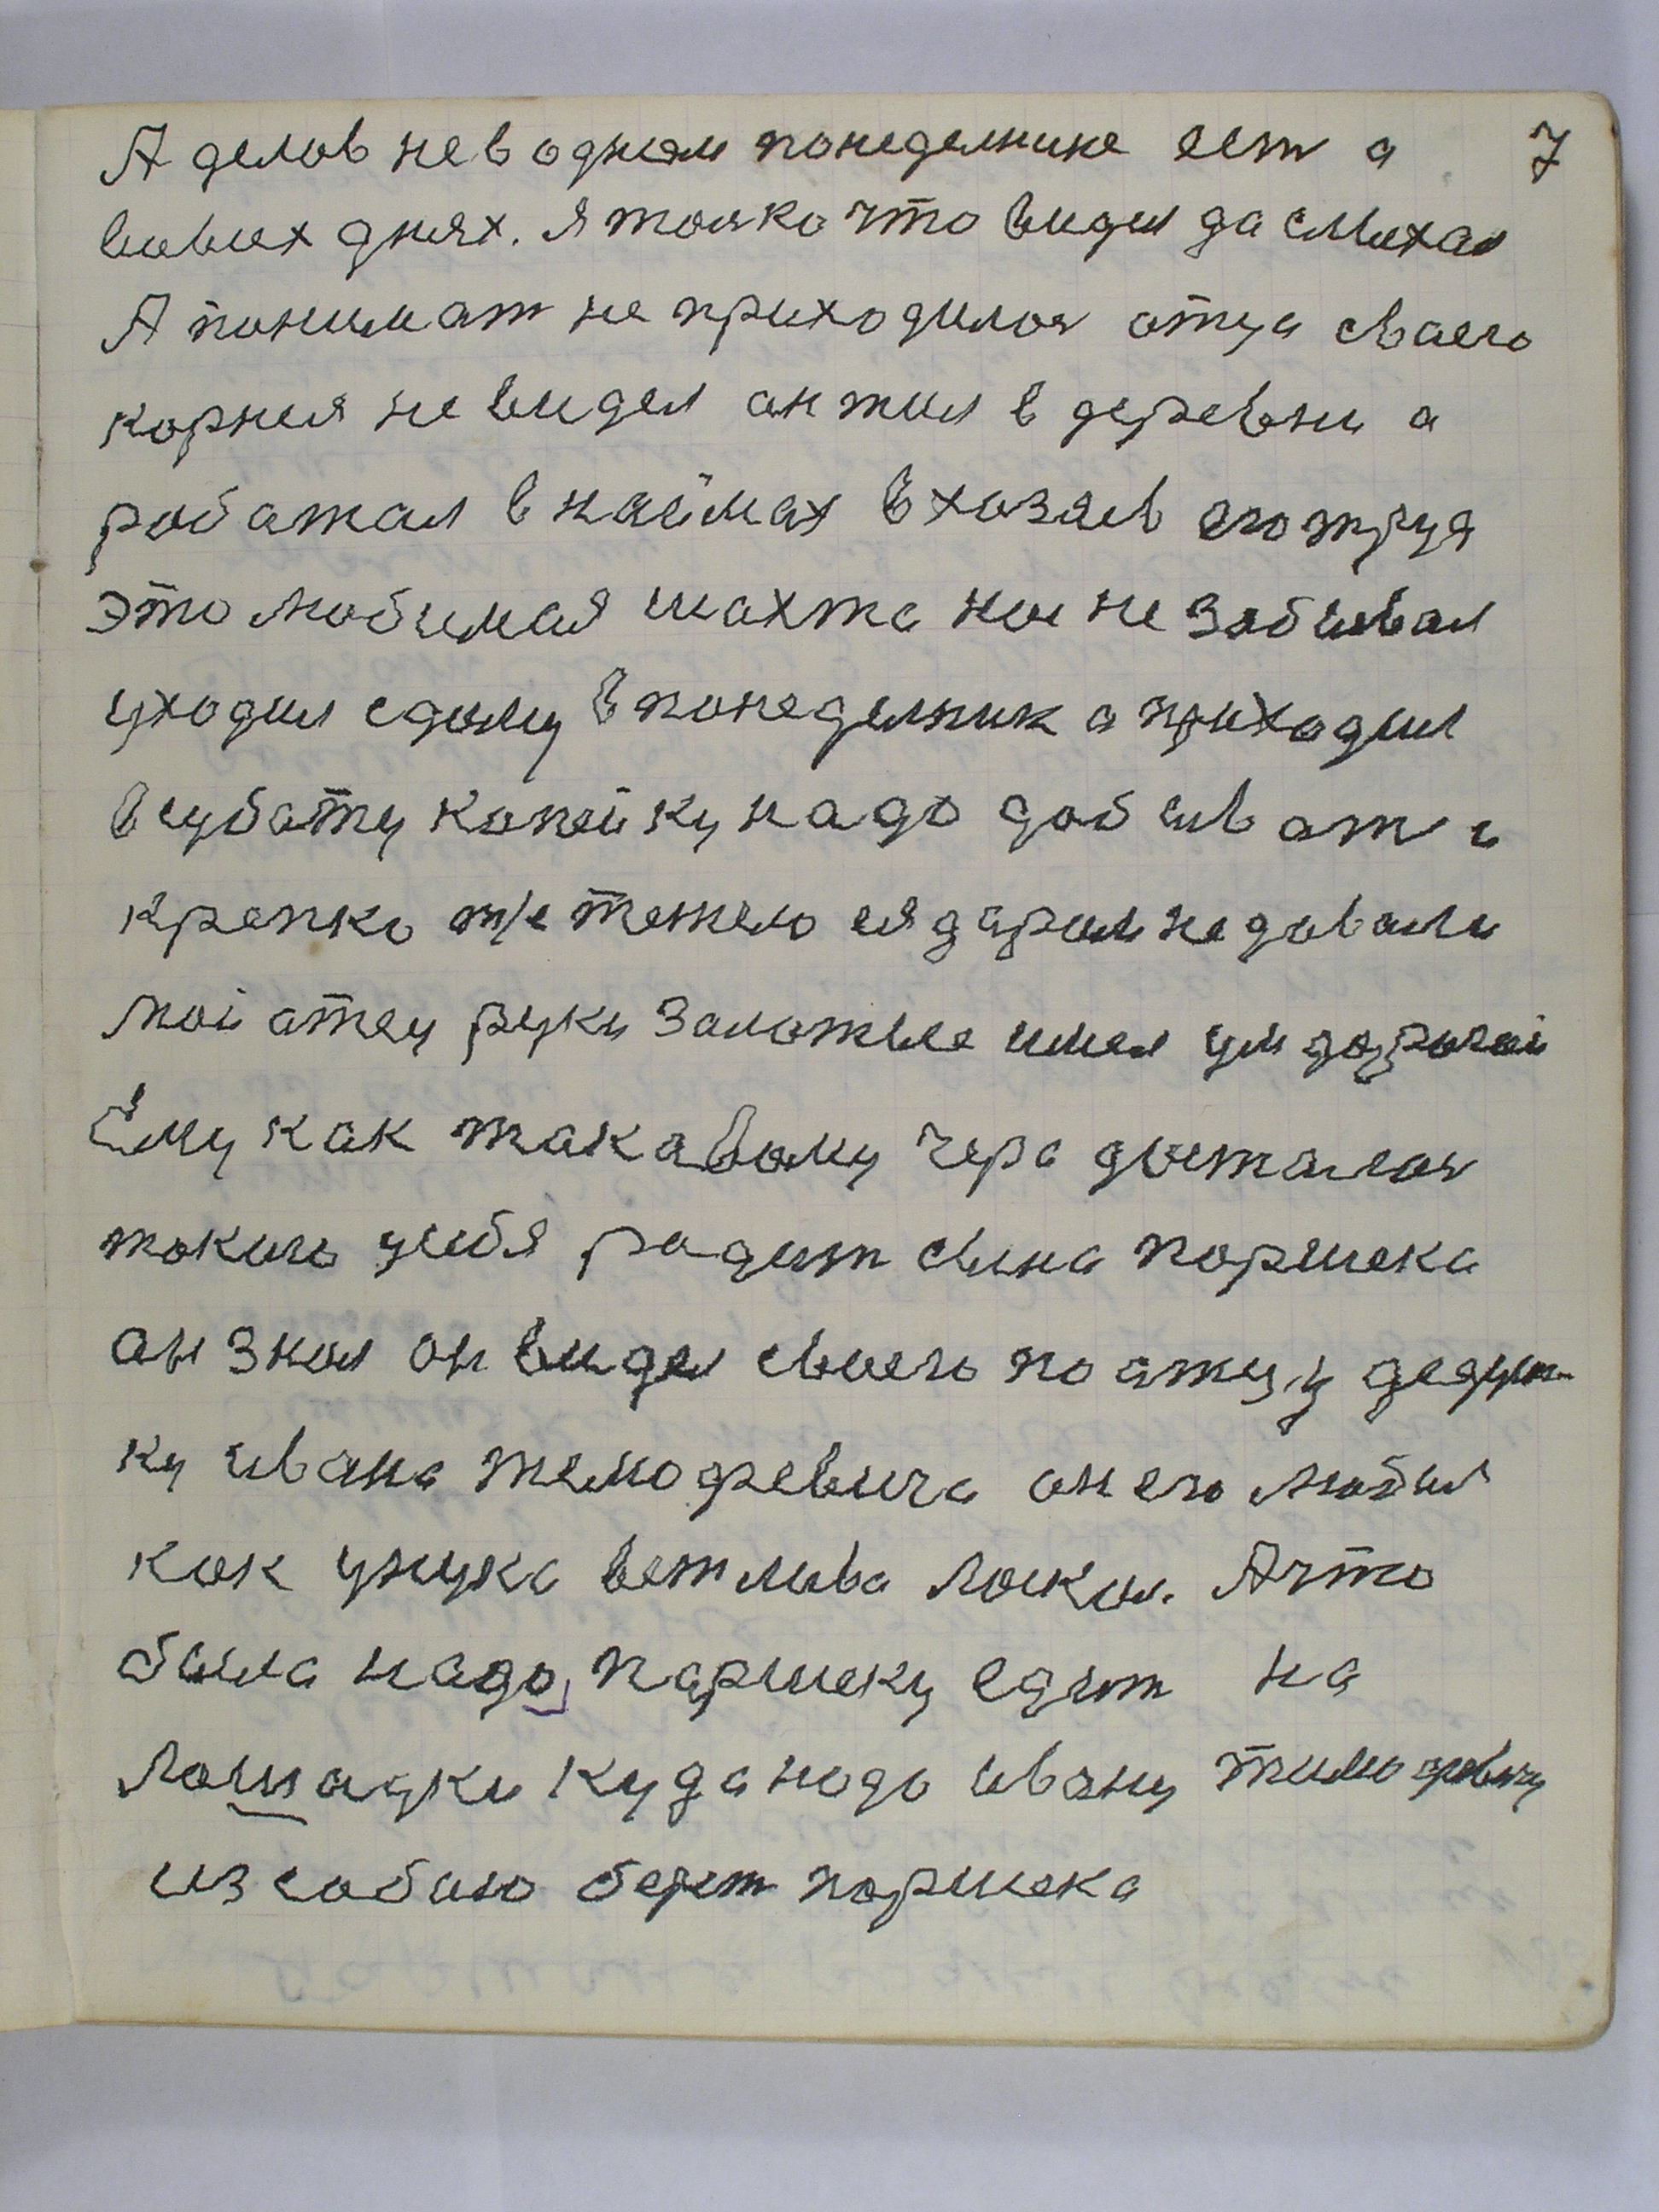 А делов не в одном понеделнике ест а 7
вивих днях. я толко что видил да слихал
А понимат не приходилоя отца сваего
корнея не видел он жил в деревни а
работал в наймах в хозяев его труд
это любимая шахта ние не забивал
уходил с дому в понеделник а приходил
в субату копейку надо добиват и
крепко т/е тежело ея даром не давали
мой атец руки залатые имел ум дорогой
Ему как такавому чера досталоя
такиго у себя радит сина паршека
он знал он видел своего по атцу дедуш-
ку ивана темофевича он его любил
как унука ветлива ласкал. А что
была надо, паршеку едит на
лошадки куда надо ивану тимофевичу
из собаю берет паршека